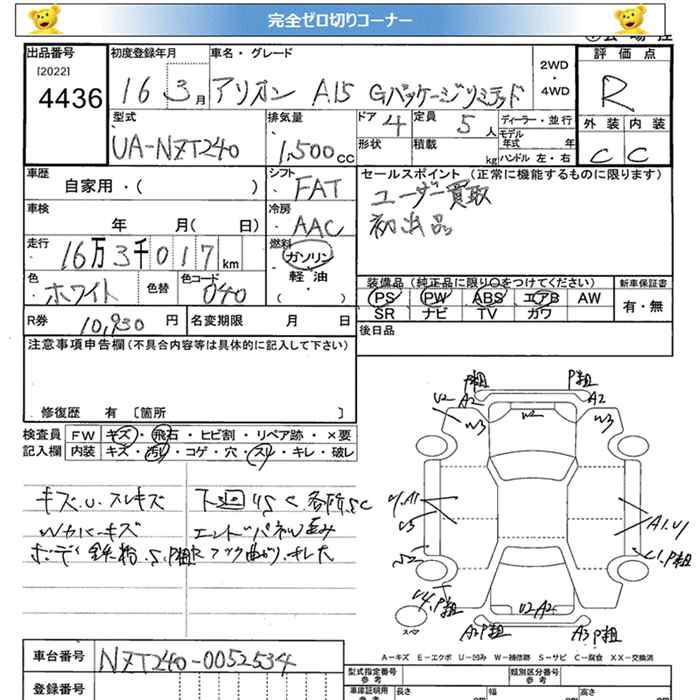 完全ゼロ切りコーナー
出品番号 初度登録年月 車名・グレード 2WD・4WD 評価点
[2022]
4436 16 3月 アリオン A15 Gパッケージリミテッド R
型式 排気量 ドア 4 定員 5人 ディーラー・並行 外装 内装
UA-NZT240 1,500cc 形状 積載 kg モデル年式 年 ハンドル 左・右 C C
車歴 シフト セールスポイント (正常に機能するものに限ります)
自家用・( ) FAT ユーザー買取
車検 冷房 初出品
年 月( 日) AAC
走行 燃料
16万3千017km ガソリン
色 色替 色コード 軽・油 装備品 (純正品に限り○をつけてください) 新車保証書
ホワイト 040 ( ) PS PW ABS エアB AW 有・無
R券 10,930円 名変期限 月 日 SR ナビ TV カワ
注意事項申告欄(不具合内容等は具体的に記入して下さい) 後日品
修復歴 有 [箇所 ]
検査員 FW キズ・飛石・ヒビ割・リペア跡・×要
記入欄 内装 キズ・汚れ・コゲ・穴・スリ・キレ・破レ
キズ.U.スレキズ 下廻りSC 各所SC
Wカバーキズ エンドパネル歪み
P粗 P粗
U2 A2 W2 A2
W3 W3
A1.U1
U4.P粗 U2 A2
スペア A2P粗 A3P粗
A-キズ E-エクボ U-凹み W-補修跡 S-サビ C-腐食 XX-交換済
車台番号 NZT240-0052534
登録番号
型式指定番号 参考 類別区分番号 参考
車庫証明用 参考 長さ 幅 高さ